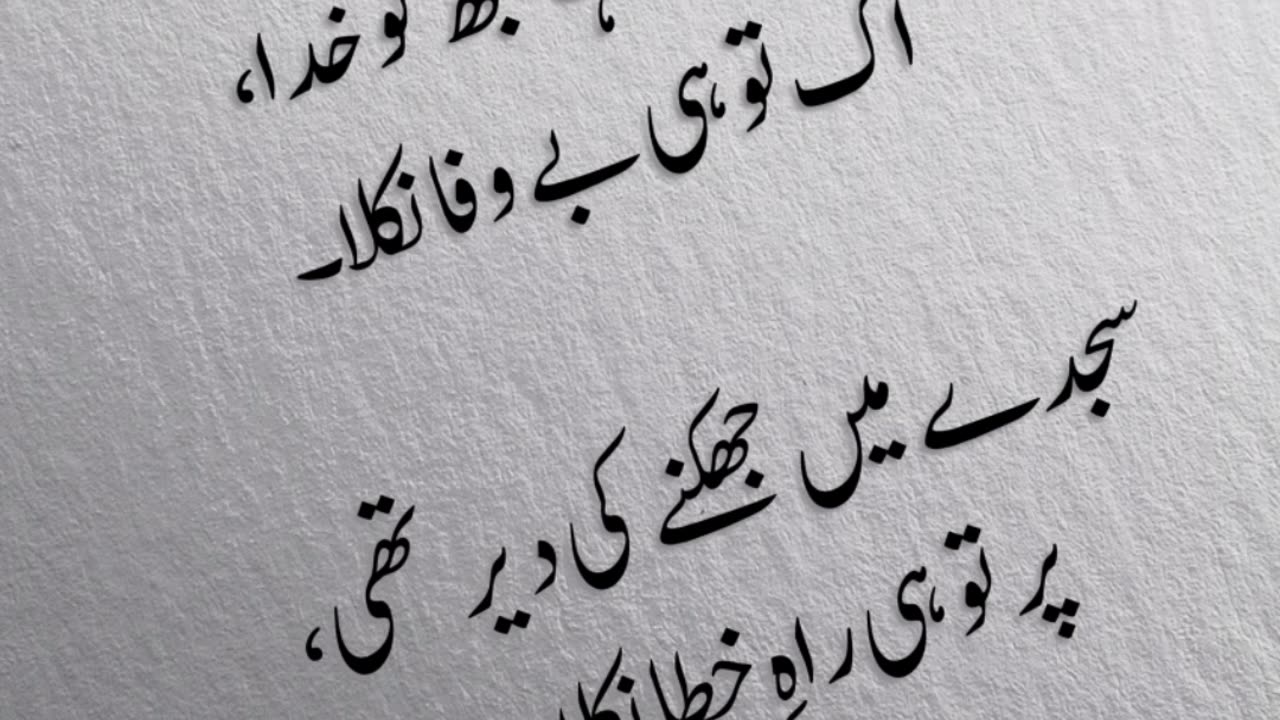 خدا،
اک تو ہی بے وفا نکلا۔
سجدے میں جھکنے کی دیر تھی،
پر تو ہی راہِ خطا نکلا